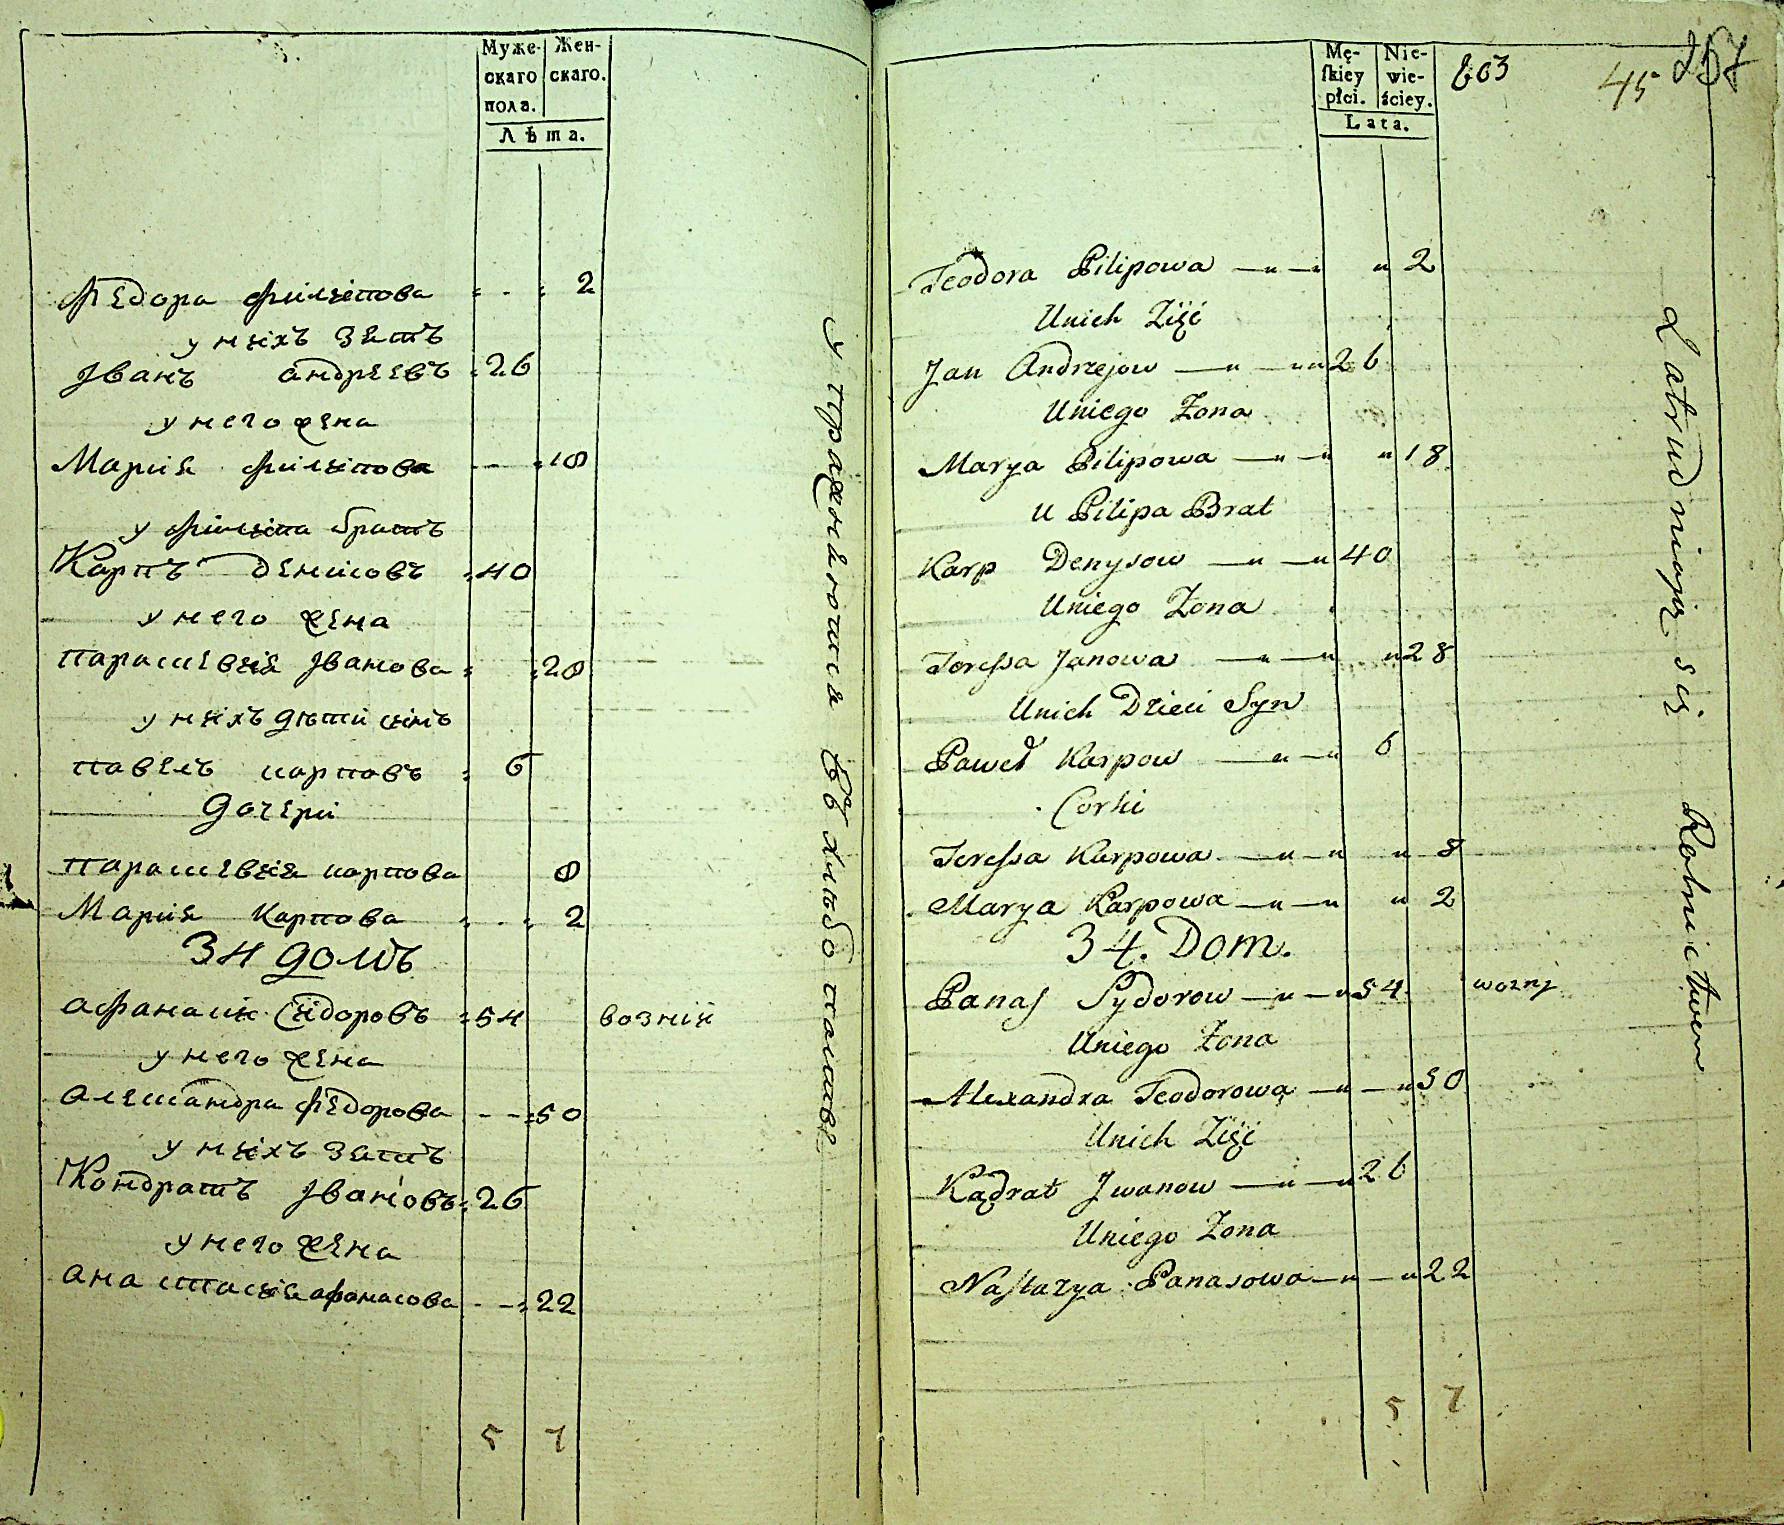 Муже-
скаго
пола.
Жен-
скаго.
Лѣта.
Ѳедора Филипова 2
у нихъ зять
Іванъ Андреевъ 26
у него жена
Мария Филипова 18
у Филипа братъ
Карпъ Денисовъ 40
у него жена
Парасковия Іванова 28
у нихъ дѣти синъ
Павелъ Карповъ 6
дочери
Парасковия Карпова 8
Мария Карпова 2
34 домъ
Афанасій Сидоровъ 54 возній
у него жена
Александра Федорова 50
у нихъ зять
Кондратъ Івановъ 26
у него жена
Анастасия Афанасова 22
5 7
Упражняются въ хлѣбопашествѣ
Mę-
skiey
płci.
Nie-
wie-
ściey.
Lata.
803
45
257
Teodora Pilipowa 2
Unich Zięć
Jan Andrzejow 26
Uniego Zona
Marya Pilipowa 18
u Pilipa Brat
Karp Denysow 40
Uniego Zona
Teressa Janowa 28
Unich Dzieci Syn
Paweł Karpow 6
Corki
Teressa Karpowa 8
Marya Karpowa 2
34. Dom.
Panas Sydorow 54 wozny
Uniego Zona
Alexandra Teodorowa 50
Unich Zięć
Kądrat Jwanow 26
Uniego Zona
Nastazya Panasowa 22
5 7
Zatrudniają się Rolnictwem